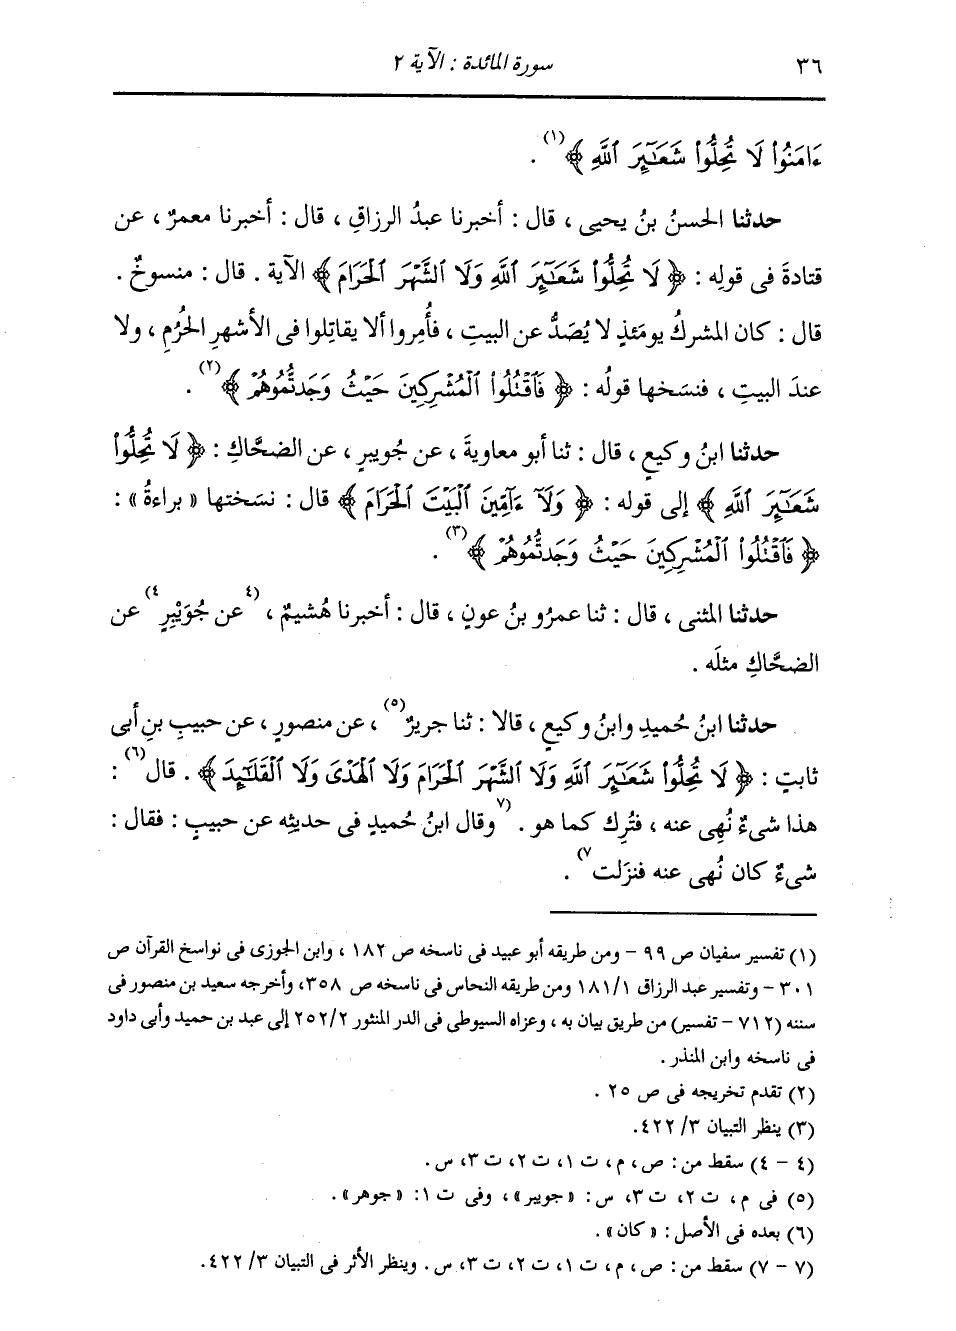 ٣٦ سورة المائدة : الآية ٢
ءَامَنُوا۟ لَا تُحِلُّوا۟ شَعَـٰٓئِرَ ٱللَّهِ ﴾(١) .
حدثنا الحسنُ بنُ يحيى ، قال : أخبرنا عبدُ الرزاقِ ، قال : أخبرنا معمرٌ ، عن
قتادةَ فى قولِه : ﴿ لَا تُحِلُّوا۟ شَعَـٰٓئِرَ ٱللَّهِ وَلَا ٱلشَّهْرَ ٱلْحَرَامَ ﴾ الآية . قال : منسوخٌ .
قال : كان المشركُ يومَئذٍ لا يُصَدُّ عن البيتِ ، فأُمِروا ألا يقاتِلوا فى الأشهرِ الحُرُمِ ، ولا
عندَ البيتِ ، فنسَخها قولُه : ﴿ فَٱقْتُلُوا۟ ٱلْمُشْرِكِينَ حَيْثُ وَجَدتُّمُوهُمْ ﴾(٢) .
حدثنا ابنُ وكيعٍ ، قال : ثنا أبو معاويةَ ، عن جُويبرٍ ، عن الضحَّاكِ : ﴿ لَا تُحِلُّوا۟
شَعَـٰٓئِرَ ٱللَّهِ ﴾ إلى قوله : ﴿ وَلَآ ءَآمِّينَ ٱلْبَيْتَ ٱلْحَرَامَ ﴾ قال : نسَختها « براءةُ » :
﴿ فَٱقْتُلُوا۟ ٱلْمُشْرِكِينَ حَيْثُ وَجَدتُّمُوهُمْ ﴾(٣) .
حدثنا المثنى ، قال : ثنا عمرُو بنُ عونٍ ، قال : أخبرنا هُشيمٌ ، (٤عن جُوَيْبِرٍ٤) عن
الضحَّاكِ مثلَه .
حدثنا ابنُ حُميدٍ وابنُ وكيعٍ ، قالا : ثنا جريرٌ(٥) ، عن منصورٍ ، عن حبيبِ بنِ أبى
ثابتٍ : ﴿ لَا تُحِلُّوا۟ شَعَـٰٓئِرَ ٱللَّهِ وَلَا ٱلشَّهْرَ ٱلْحَرَامَ وَلَا ٱلْهَدْىَ وَلَا ٱلْقَلَـٰٓئِدَ ﴾ . قال(٦) :
هذا شىءٌ نُهِى عنه ، فتُرِك كما هو . (٧وقال ابنُ حُميدٍ فى حديثِه عن حبيبٍ : فقال :
شىءٌ كان نُهى عنه فنزَلت٧) .
(١) تفسير سفيان ص ٩٩ - ومن طريقه أبو عبيد فى ناسخه ص ١٨٢ ، وابن الجوزى فى نواسخ القرآن ص
٣٠١ - وتفسير عبد الرزاق ١/ ١٨١ ومن طريقه النحاس فى ناسخه ص ٣٥٨، وأخرجه سعيد بن منصور فى
سننه (٧١٢ - تفسير) من طريق بيان به ، وعزاه السيوطى فى الدر المنثور ٢٥٢/٢ إلى عبد بن حميد وأبى داود
فى ناسخه وابن المنذر .
(٢) تقدم تخريجه فى ص ٢٥ .
(٣) ينظر التبيان ٣/ ٤٢٢.
(٤ - ٤) سقط من : ص ، م ، ت ١، ت ٢، ت ٣، س .
(٥) فى م ، ت ٢، ت ٣، س : « جويبر » ، وفى ت ١: « جوهر » .
(٦) بعده فى الأصل : « كان » .
(٧ - ٧) سقط من : ص ، م ، ت ١، ت ٢، ت ٣، س . وينظر الأثر فى التبيان ٣/ ٤٢٢.